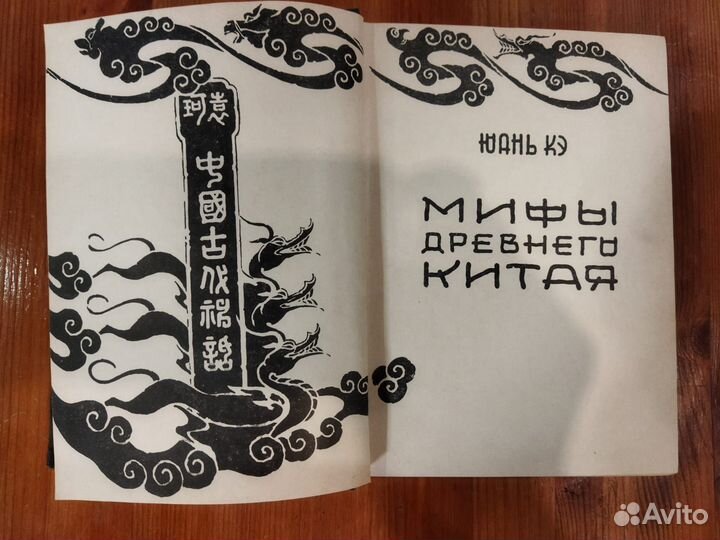 袁珂
中國古代神話
ЮАНЬ КЭ
МИФЫ
ДРЕВНЕГО
КИТАЯ
Avito